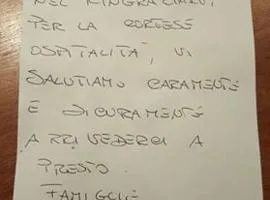 NEL RINGRAZIARVI
PER LA CORTESE
OSPITALITÀ, VI
SALUTIAMO CARAMENTE
E SICURAMENTE
ARRIVEDERCI A
PRESTO.
FAMIGLIE